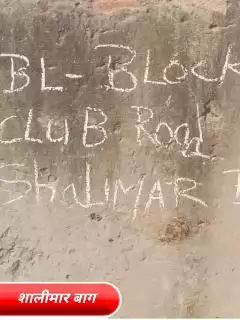 BL-Block
Club Road
Shalimar
शालीमार बाग